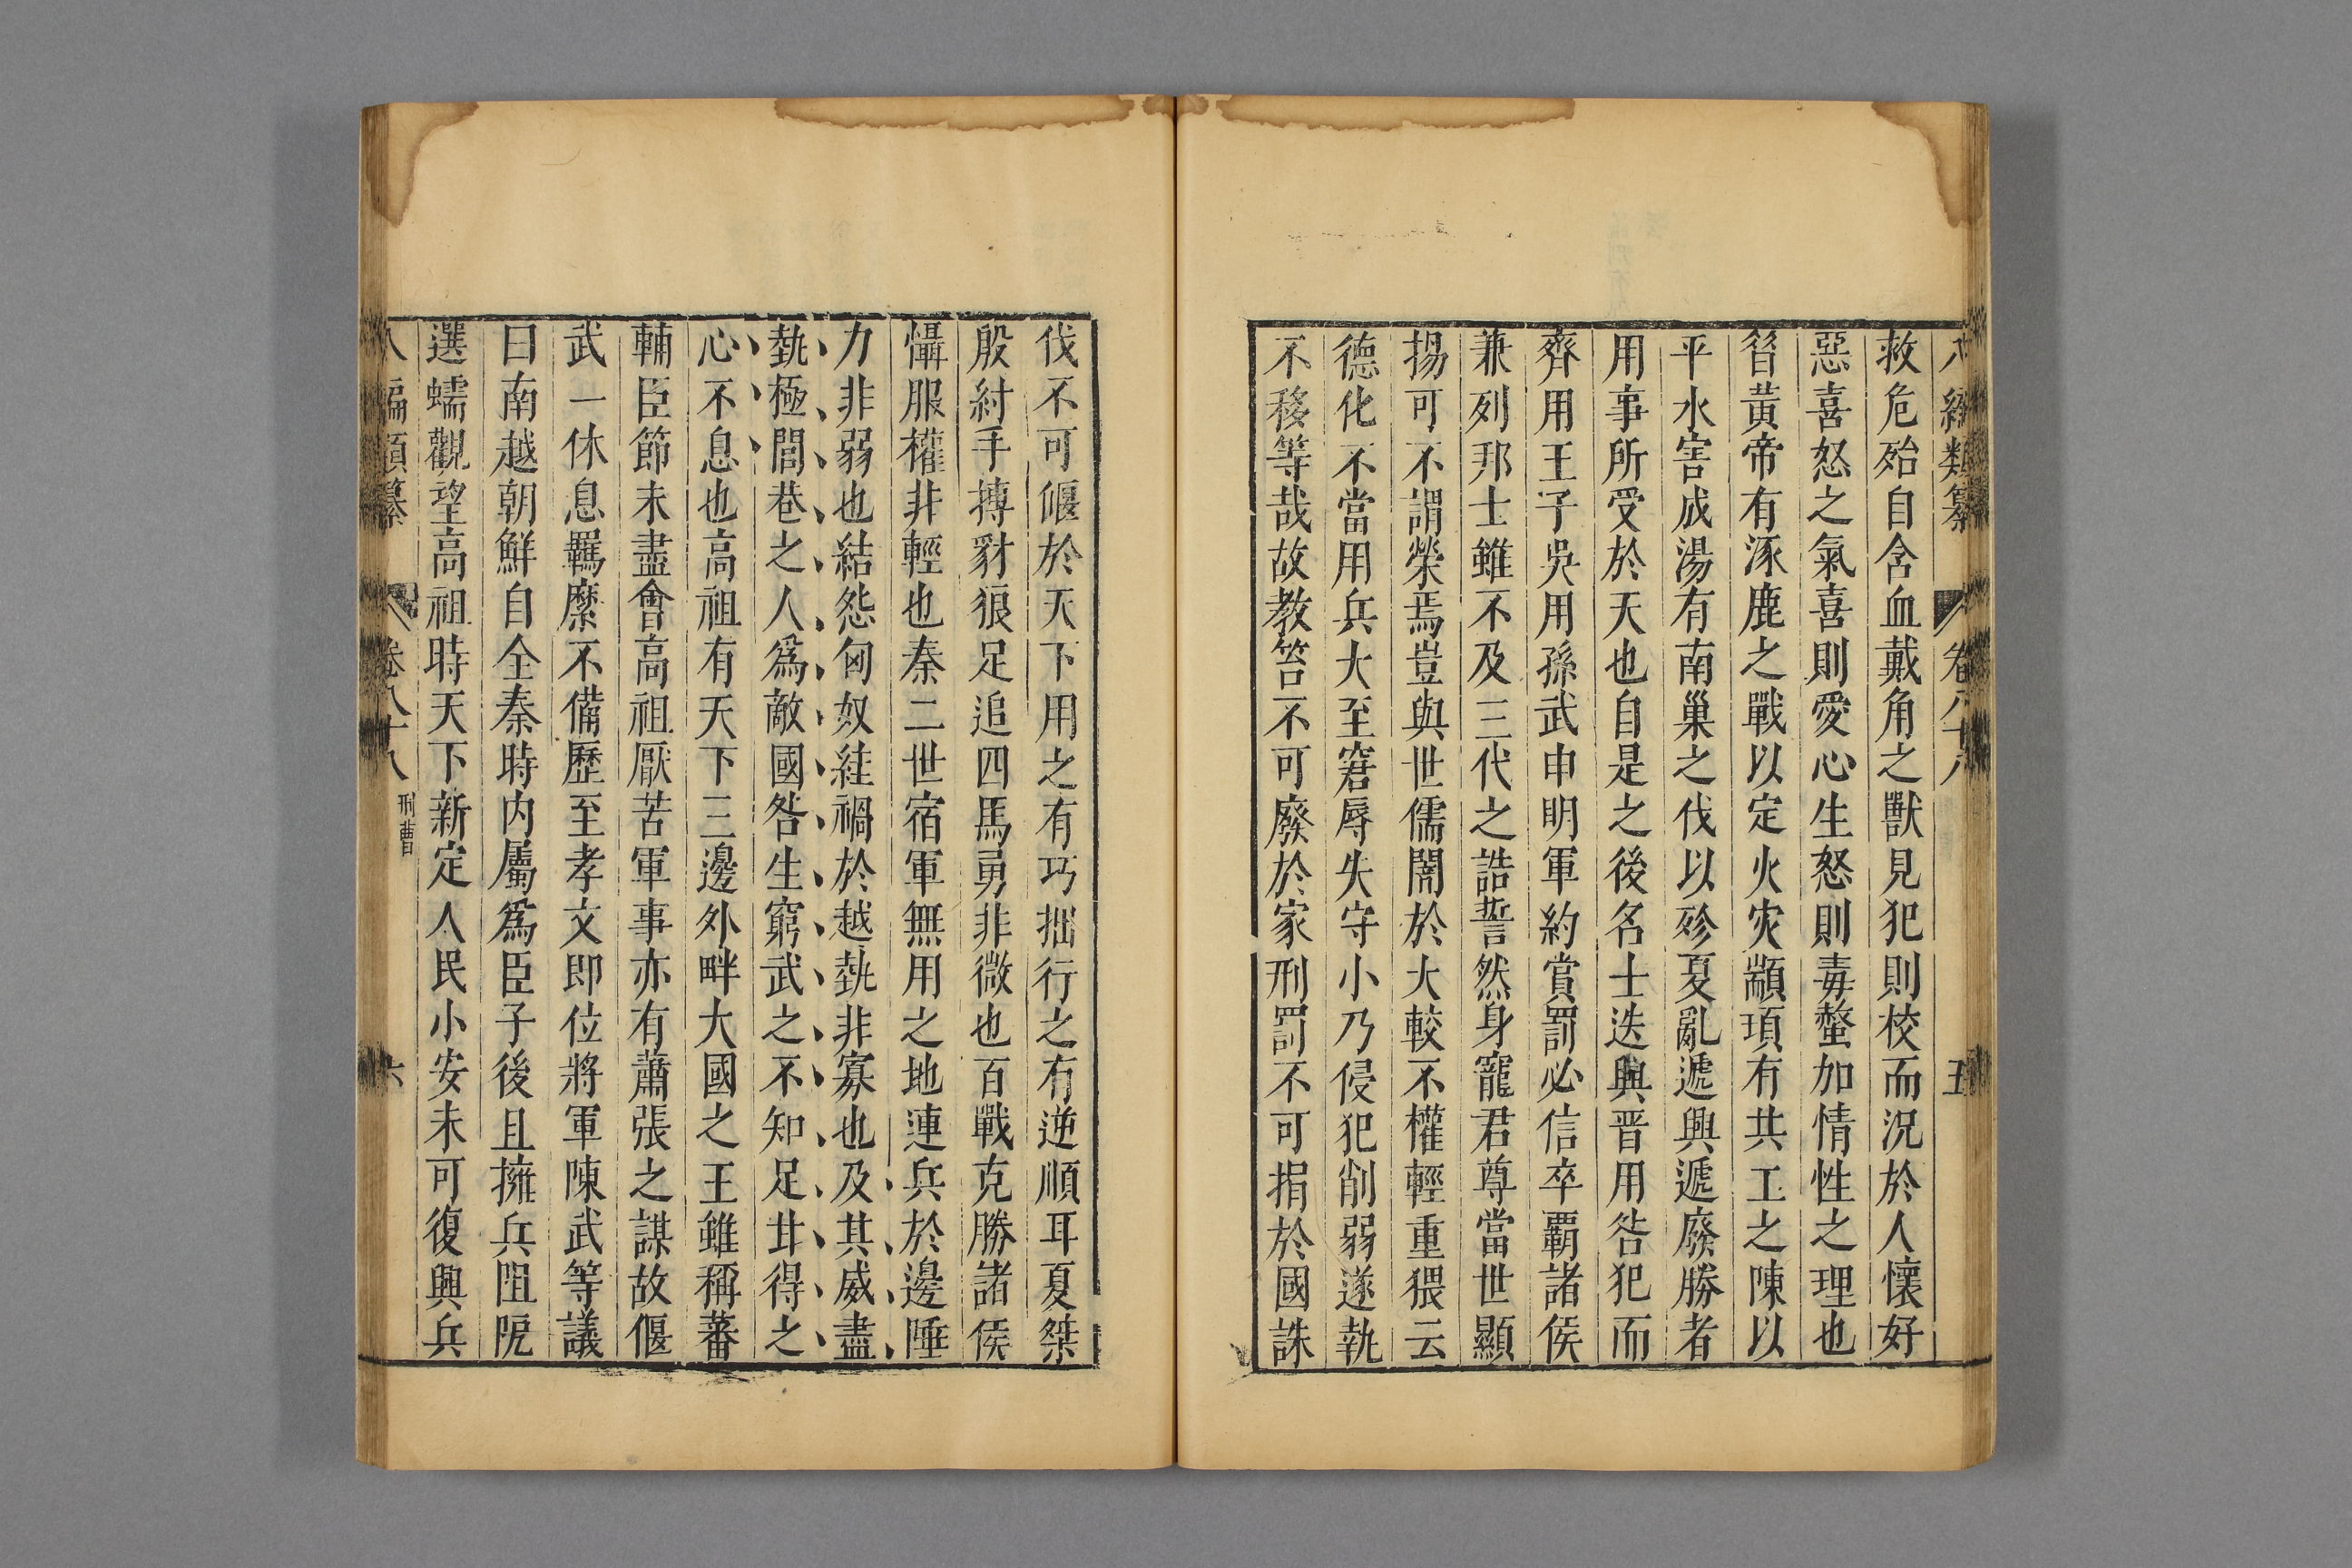 救危殆自含血戴角之獸見犯則校而況於人懷好
惡喜怒之氣喜則愛心生怒則毒螫加情性之理也
昝黃帝有涿鹿之戰以定火灾顓頊有共工之陳以
平水害成湯有南巢之伐以殄夏亂遞興遞廢勝者
用事所受於天也自是之後名士迭興晋用咎犯而
齊用王子吳用孫武申明軍約賞罰必信卒霸諸侯
兼列邦士雖不及三代之誥誓然身寵君尊當世顯
揚可不謂榮焉豈與世儒闇於大較不權輕重猥云
德化不當用兵大至窘辱失守小乃侵犯削弱遂執
不移等哉故教笞不可廢於家刑罰不可捐於國誅
伐不可偃於天下用之有巧拙行之有逆順耳夏桀
殷紂手搏豺狼足追四馬勇非微也百戰克勝諸侯
懾服權非輕也秦二世宿軍無用之地連兵於邊陲
力非弱也結怨匈奴絓禍於越埶非寡也及其威盡
埶極閭巷之人爲敵國咎生窮武之不知足甘得之
心不息也高祖有天下三邊外畔大國之王雖稱蕃
輔臣節未盡會高祖厭苦軍事亦有蕭張之謀故偃
武一休息羈縻不備歷至孝文即位將軍陳武等議
曰南越朝鮮自全秦時内屬爲臣子後且擁兵阻阸
選蠕觀望高祖時天下新定人民小安未可復興兵
八編類纂 卷八十八 刑曹 六